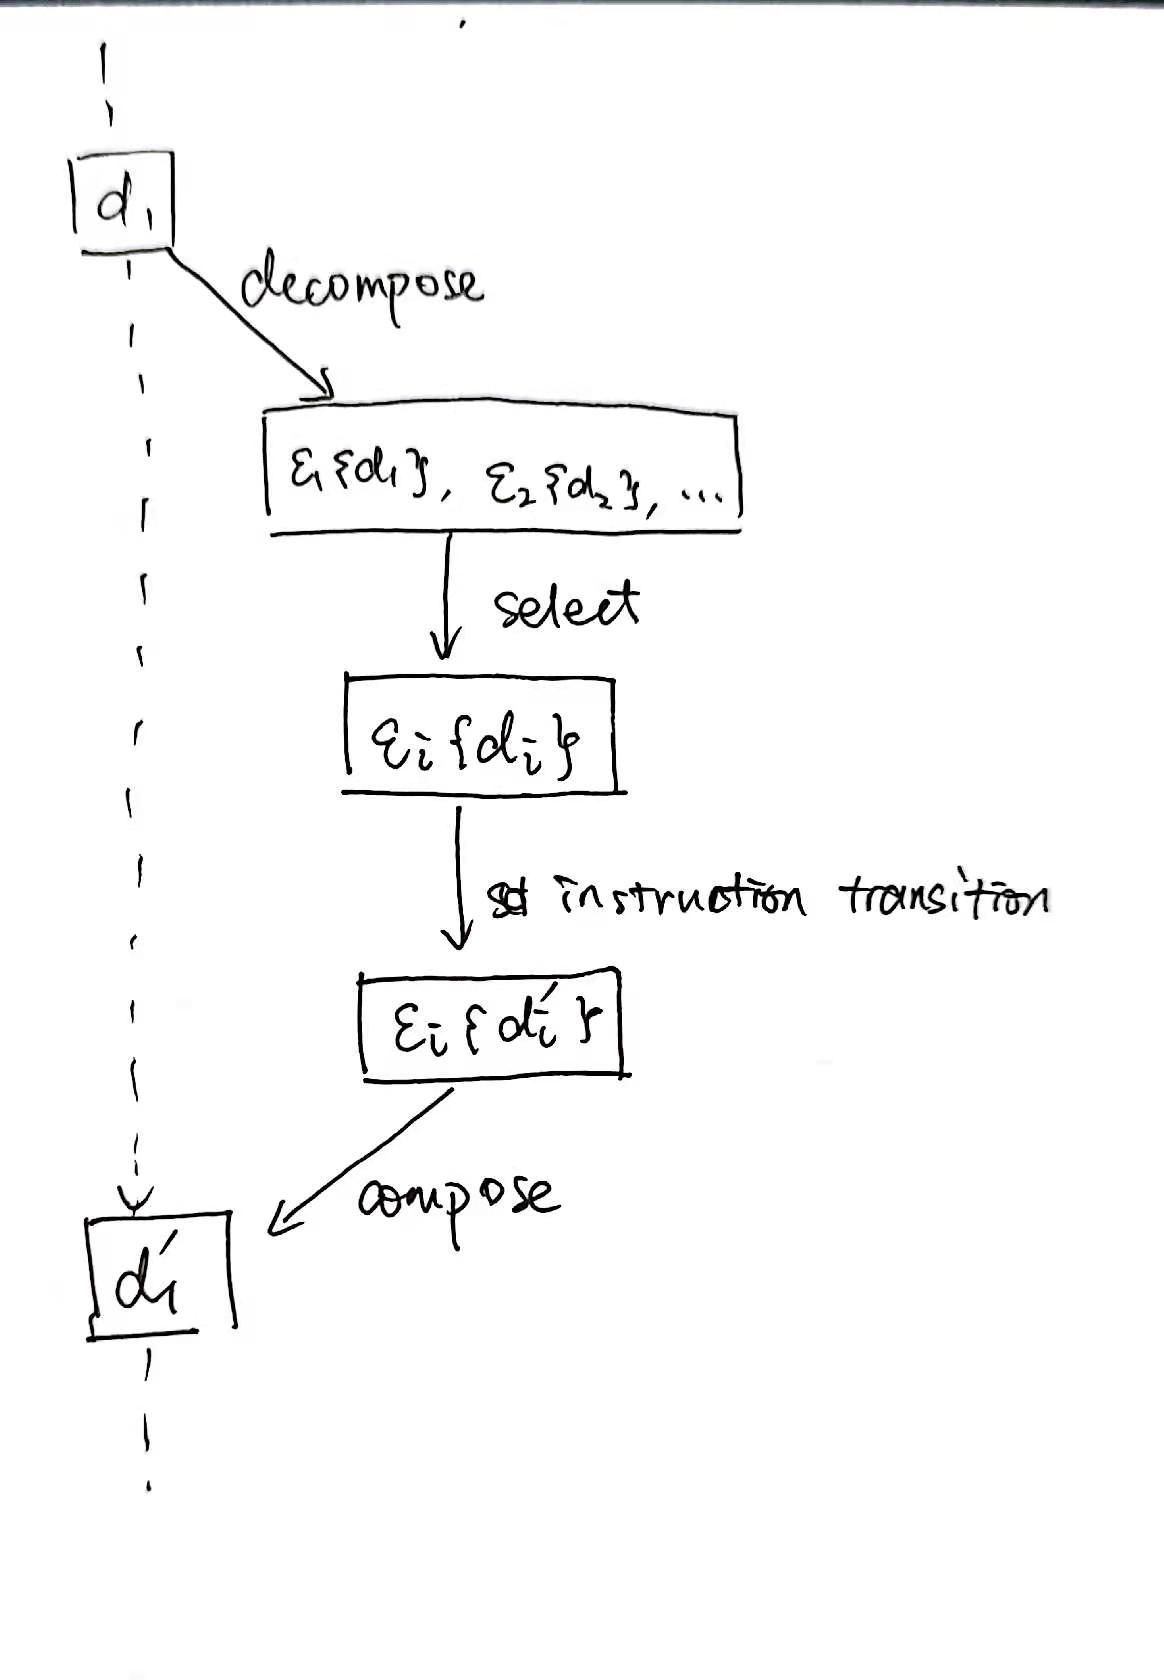 d₁
decompose
ε₁{d₁}, ε₂{d₂}, ...
select
εᵢ{dᵢ}
instruction transition
εᵢ{dᵢ′}
compose
d₁′